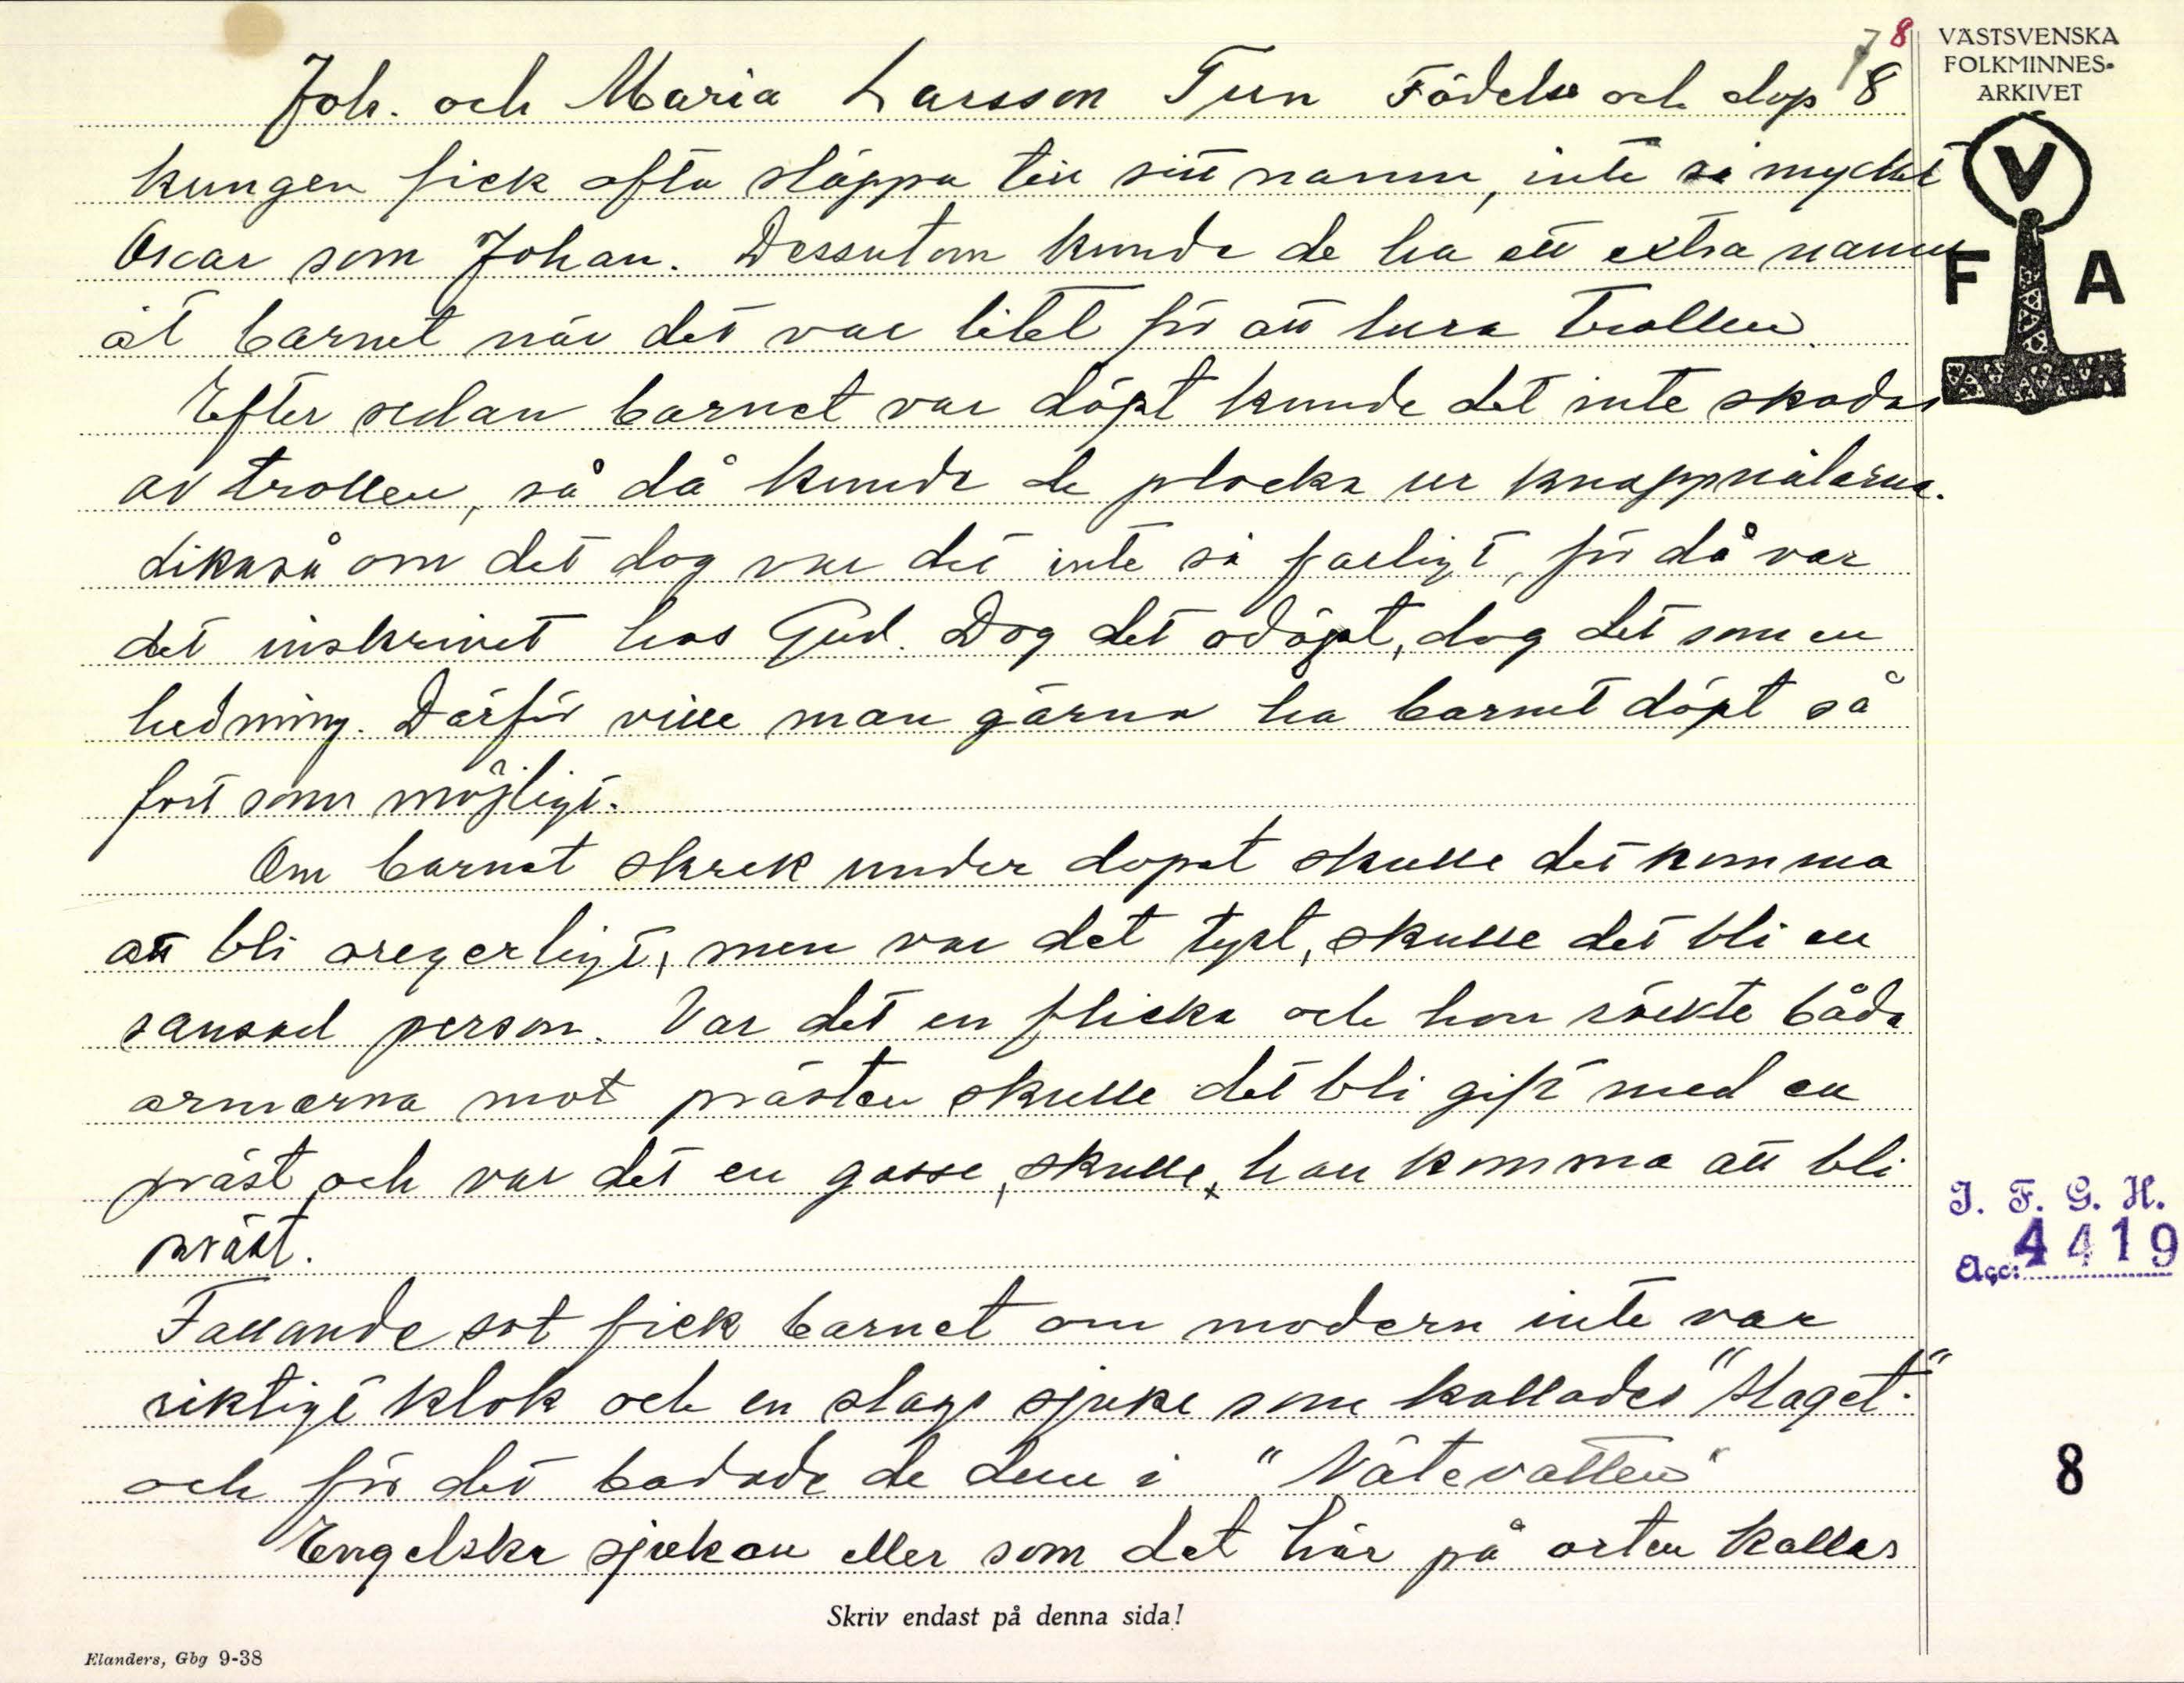 8
7
VÄSTSVENSKA
FOLKMINNES-
ARKIVET
Joh. och Maria Larsson Tun Födelse och dop 8
kungen fick ofta släppa till sitt namn, inte så mycket
Oscar som Johan. Dessutom kunde de ha ett extra namn
åt barnet när det var litet för att lura trollen.
Efter sedan barnet var döpt kunde det inte skadas
av trollen, så då kunde de plocka ur knappnålarna.
Likaså om det dog var det inte så farligt, för då var
det inskrivet hos Gud. Dog det odöpt, dog det som en
hedning. Därför ville man gärna ha barnet döpt så
fort som möjligt.
Om barnet skrek under dopet skulle det komma
att bli oregerligt, men var det tyst, skulle det bli en
sansad person. Var det en flicka och hon räckte båda
armarna mot prästen skulle det bli gift med en
präst, och var det en gosse, skulle han komma att bli
präst.
Fallande sot fick barnet om modern inte var
riktigt klok och en slags sjuke som kallades "Slaget."
och för det badade de dem i "Nätevatten"
Engelska sjukan eller som det här på orten kallas
V
F A
I. F. G. H.
Acc: 4419
8
Skriv endast på denna sida!
Elanders, Gbg 9-38